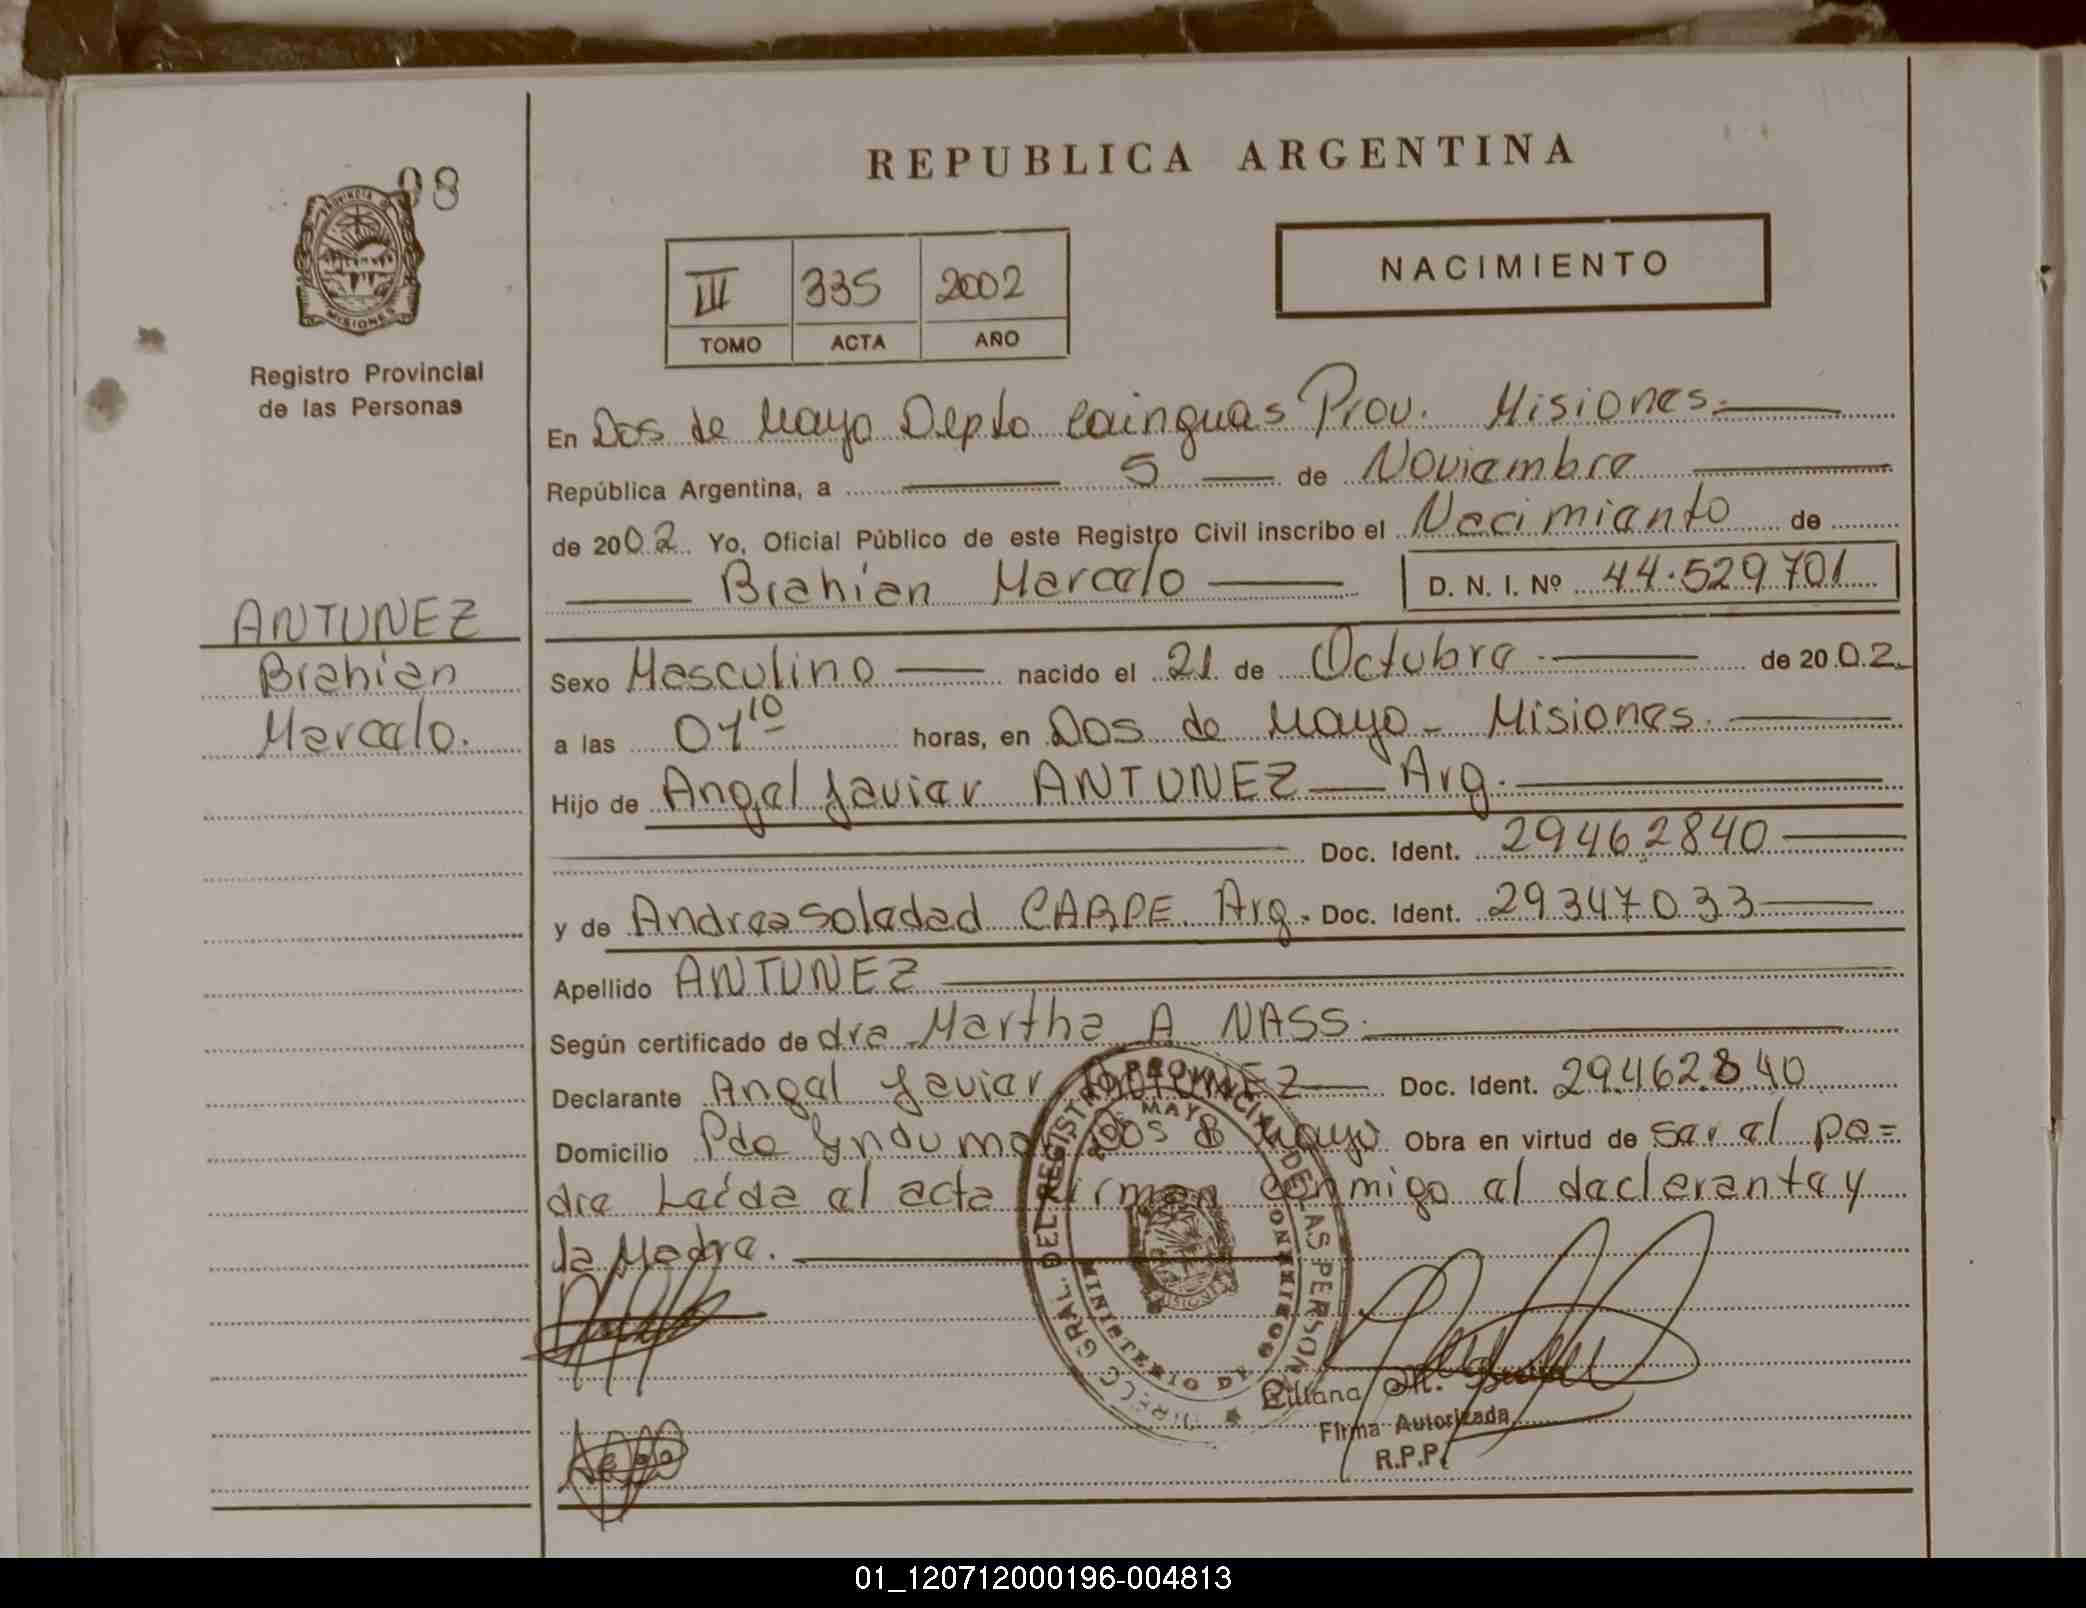 98
PROVINCIA DE
MISIONES
Registro Provincial
de las Personas
REPUBLICA ARGENTINA
III 335 2002
TOMO ACTA AÑO
NACIMIENTO
En Dos de Mayo Depto Cainguas Prov. Misiones.
República Argentina, a 5 de Noviembre
de 2002. Yo, Oficial Público de este Registro Civil inscribo el Nacimiento de
Brahian Marcelo
D. N. I. Nº 44.529701
ANTUNEZ
Brahian
Marcelo.
Sexo Masculino nacido el 21 de Octubre de 2002
a las 01 10 horas, en Dos de Mayo - Misiones.
Hijo de Angel Javier ANTUNEZ Arg.
Doc. Ident. 29462840
y de Andrea Soledad CARPE Arg. Doc. Ident. 29347033
Apellido ANTUNEZ
Según certificado de dra Martha A NASS.
Declarante Angel Javier ANTUNEZ Doc. Ident. 29462840
Domicilio Pdo Dos de Mayo Obra en virtud de ser el pa=
dre Leída el acta firman conmigo el declarante y
la Madre.
DIRECC. GRAL. DEL REGISTRO PROVINCIAL DE LAS PERSONAS
DOS DE MAYO
MINISTERIO DE
MISIONES
Liliana M.
Firma Autorizada
R.P.P.
01_120712000196-004813